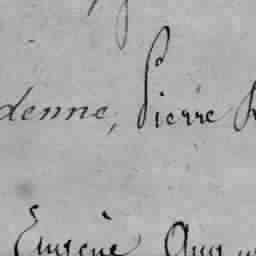 denne, Pierre
Eugène Aug